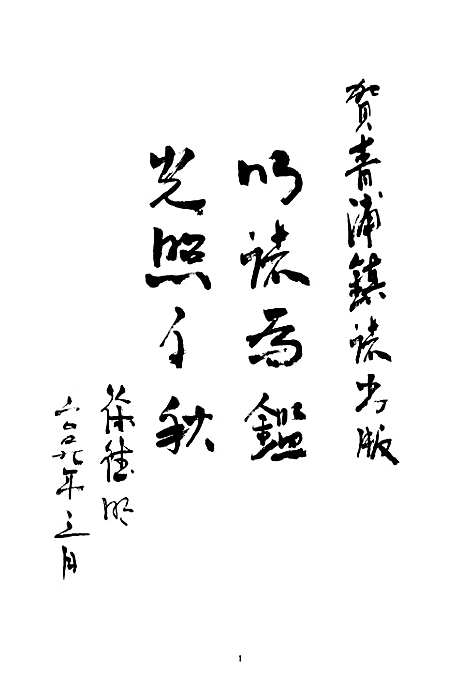 賀青浦鎮誌出版
以誌为鑑
光照千秋
徐建明
二〇〇九年三月
1